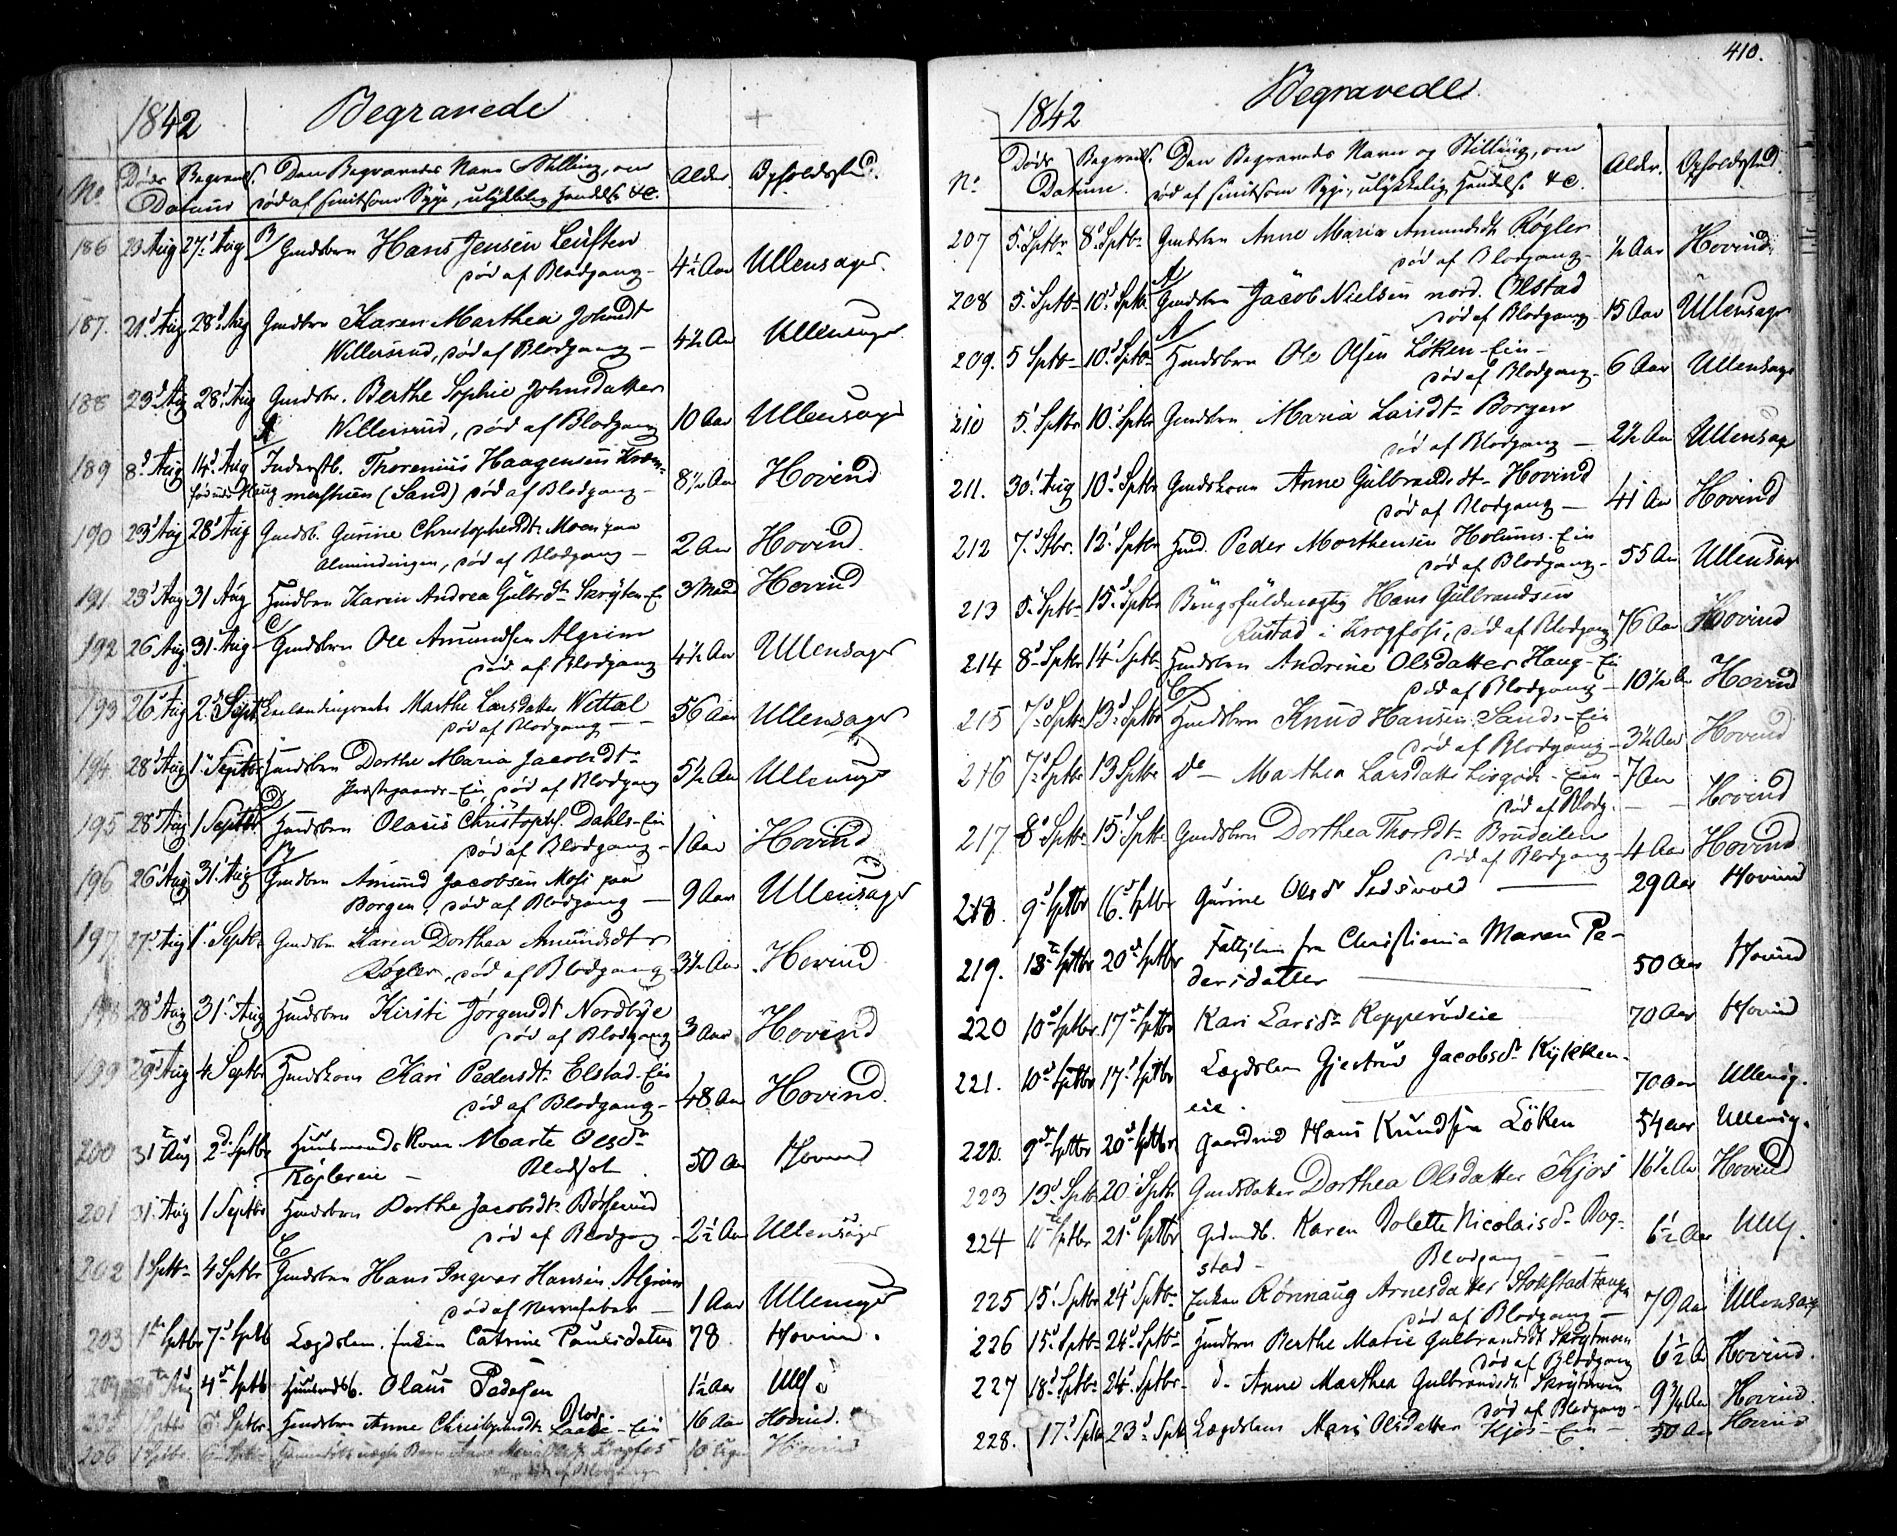 1842 Begravede
No Døds Begravels. Den Begravedes Navn Stilling, om Alder. Opholdssted.
Datum død af smitsom Syge, ulykkelig Hændelse &c.
186 23 Aug 27 Aug Gmdsbrn Hans Jensen
død af Blodgang 4½ Aar Ullensager.
187. 21 Aug 28 Aug Gmdbrn Karen Marthea Johnsdt
Willersrud, død af Blodgang 4½ Aar Ullensager
188 23 Aug 28 Aug Gmdsbr. Berthe Sophie Johnsdatter
Willersrud, død af Blodgang 10 Aar Ullensager
189 8 Aug 14 Aug Inderstb. Thorenius Haagensen
(Sand) død af Blodgang 8½ Aar Hovind
190 23 Aug 28 Aug Gmdsb. Gurine Christophersdt Moen paa
Almindingen, død af Blodgang 2 Aar Hovind
191 23 Aug 31 Aug Hmdbrn Karen Andrea Gulbrdt 3 Mаd Hovind
192 26 Aug 31 Aug Gmdsbrn Ole Amundsen Algrim
død af Blodgang 4½ Aar Ullensager
193 26 Aug 2 Sept Marthe Larsdatter Wittal
død af Blodgang 56 Aar Ullensager
194 28 Aug 1 Septbr Hmdsbrn Dorthe Maria Jacobsdt
Præstegaards-Ein, død af Blodgang 5½ Aar Ullensager
195 28 Aug 1 Septbr Hmdsbrn Olaus Christophs. Dahls-Ein
død af Blodgang 1 Aar Hovind
196 26 Aug 31 Aug Gmdbrn Amund Jacobsen Mosi paa
Borgen, død af Blodgang 9 Aar Ullensager
197 27 Aug 1 Septbr Gmdsbn Karen Dorthea Amundsdtr
Røgler, død af Blodgang 3½ Aar Hovind
198 28 Aug 31 Aug Hmdsbrn Kirsti Jørgensdt Nordbye
død af Blodgang 3 Aar Hovind
199 29 Aug 4 Septbr Hmdskone Kari Pedersdt Elstad-Ein
død af Blodgang 48 Aar Hovind.
200 31 Aug 2 Septbr Huusmands Kone Marte Olsdr
Røglereie Blodsot 50 Aar Hovind
201 31 Aug 1 Septbr Hmdsbrn Berthe Jacobsdt
død af Blodgang 2½ Aar Ullensager
202 1 Sptbr 4 Sptbr Gmdsbrn Hans Ingvar Hansen Algrim
død af Nervefeber 1 Aar Ullensager
203 1 Sptbr 7 Sptb Lægdslem. Enken Catrine Paulsdatter 78 Hovind.
204 Aug 4 Sptb Huusmdsb. Olaus Pedersen 1½ Aar Ulls
205 Sptbr Hmdsbrn Anne Christophersdt -Ein Blod. 16 Aar Hovind.
206 1 Sptbr. Hovind
død af Blodgang
410.
1842 Begravede
No Døds Begravels. Den Begravedes Navn og Stilling, om Alder. Opholdssted.
Datum. død af smitsom Syge, ulykkelig Hændelse &c.
207 5 Sptbr 8 Sptbr Gmdsbrn Anne Maria Amundsdt Røgler
død af Blodgang ½ Aar Hovind.
208 5 Sptb 10 Sptb Gmdsbn Jacob Nielsen nord. Ølstad
død af Blodgang 15 Aar Ullensager
209. 5 Sptb 10 Sptb Hmdsbrn Ole Olsen Løken-Ein
død af Blodgang 6 Aar Ullensager
210 5 Sptbr 10 Sptbr Gmdsbrn Maria Larsdt Borgen
død af Blodgang 2½ Aar Ullensager
211. 30 Aug 10 Sptbr Gmdskone Anne Gulbrandsdt Hovind
død af Blodgang 41 Aar Hovind
212 7 Sbr. 12 Sptbr Hmd. Peder Morthensen Holums-Ein
død af Blodgang 55 Aar Ullensager
213 5 Sptb 15 Sptbr Hans Gulbrandsen
Rustad i Krogfoss, død af Blodgang 76 Aar Hovind
214 8 Sptbr 14 Sptb Hmdsbrn Andrine Olsdatter Haug-Ein
død af Blodgang 10½ Aar Hovind
215 7 Sptbr 13 Sptbr Hmdsbrn Knud Hansen Sands-Ein
død af Blodgang 3½ Aar Hovind
216 7 Sptbr 13 Sptbr do Marthea Larsdatter -Ein 7 Aar
død af Blodg. Hovind
217 8 Sptbr 15 Sptbr Gmdsbrn Dorthea Thorsdt
død af Blodgang 4 Aar Hovind
218. 9 Sptbr 16 Sptbr Gurine Olsdr 29 Aar Hovind
219. 13 Sptbr 20 Sptbr Fattiglem fra Christiania Maren Pe-
dersdatter 50 Aar Hovind
220 10 Sptbr 17 Sptbr Kari Larsdr Kopperudeie 70 Aar Hovind
221. 10 Sptbr 17 Sptbr Lægdslem Gjertrud Jacobsdr Kykken-
eie. 70 Aar Ullensg.
222. 9 Sptbr 20 Sptbr Gaardmd Hans Knudsen Løken 54 aar Ullensg.
223 13 Sptb 20 Sptbr Gmdsdatter Dorthea Olsdatter Kjos 16½ Aar Hovind
224 11 Sptbr 21 Sptbr Grdmdb. Karen Bolette Nicolaisdr Bog-
stad Blodgang 6½ Aar Ulls.
225 15 Sptbr 24 Sptb Enken Rønnaug Arnesdatter
død af Blodgang 79 Aar Ullensager
226 15 Sptb 24 Sptb Hmdbrn Berthe Marie Gulbrandsdt
død af Blodgang 6½ A Hovind.
227 18 Sptb 24 Sptbr d- Anne Marthea Gulbrandsdt
død af Blodgang 9¾ Aar Hovind.
228. 17 Sptb 23 Sptb Lægdslem Mari Olsdatter Kjos-Ein 50 Aar Hovind